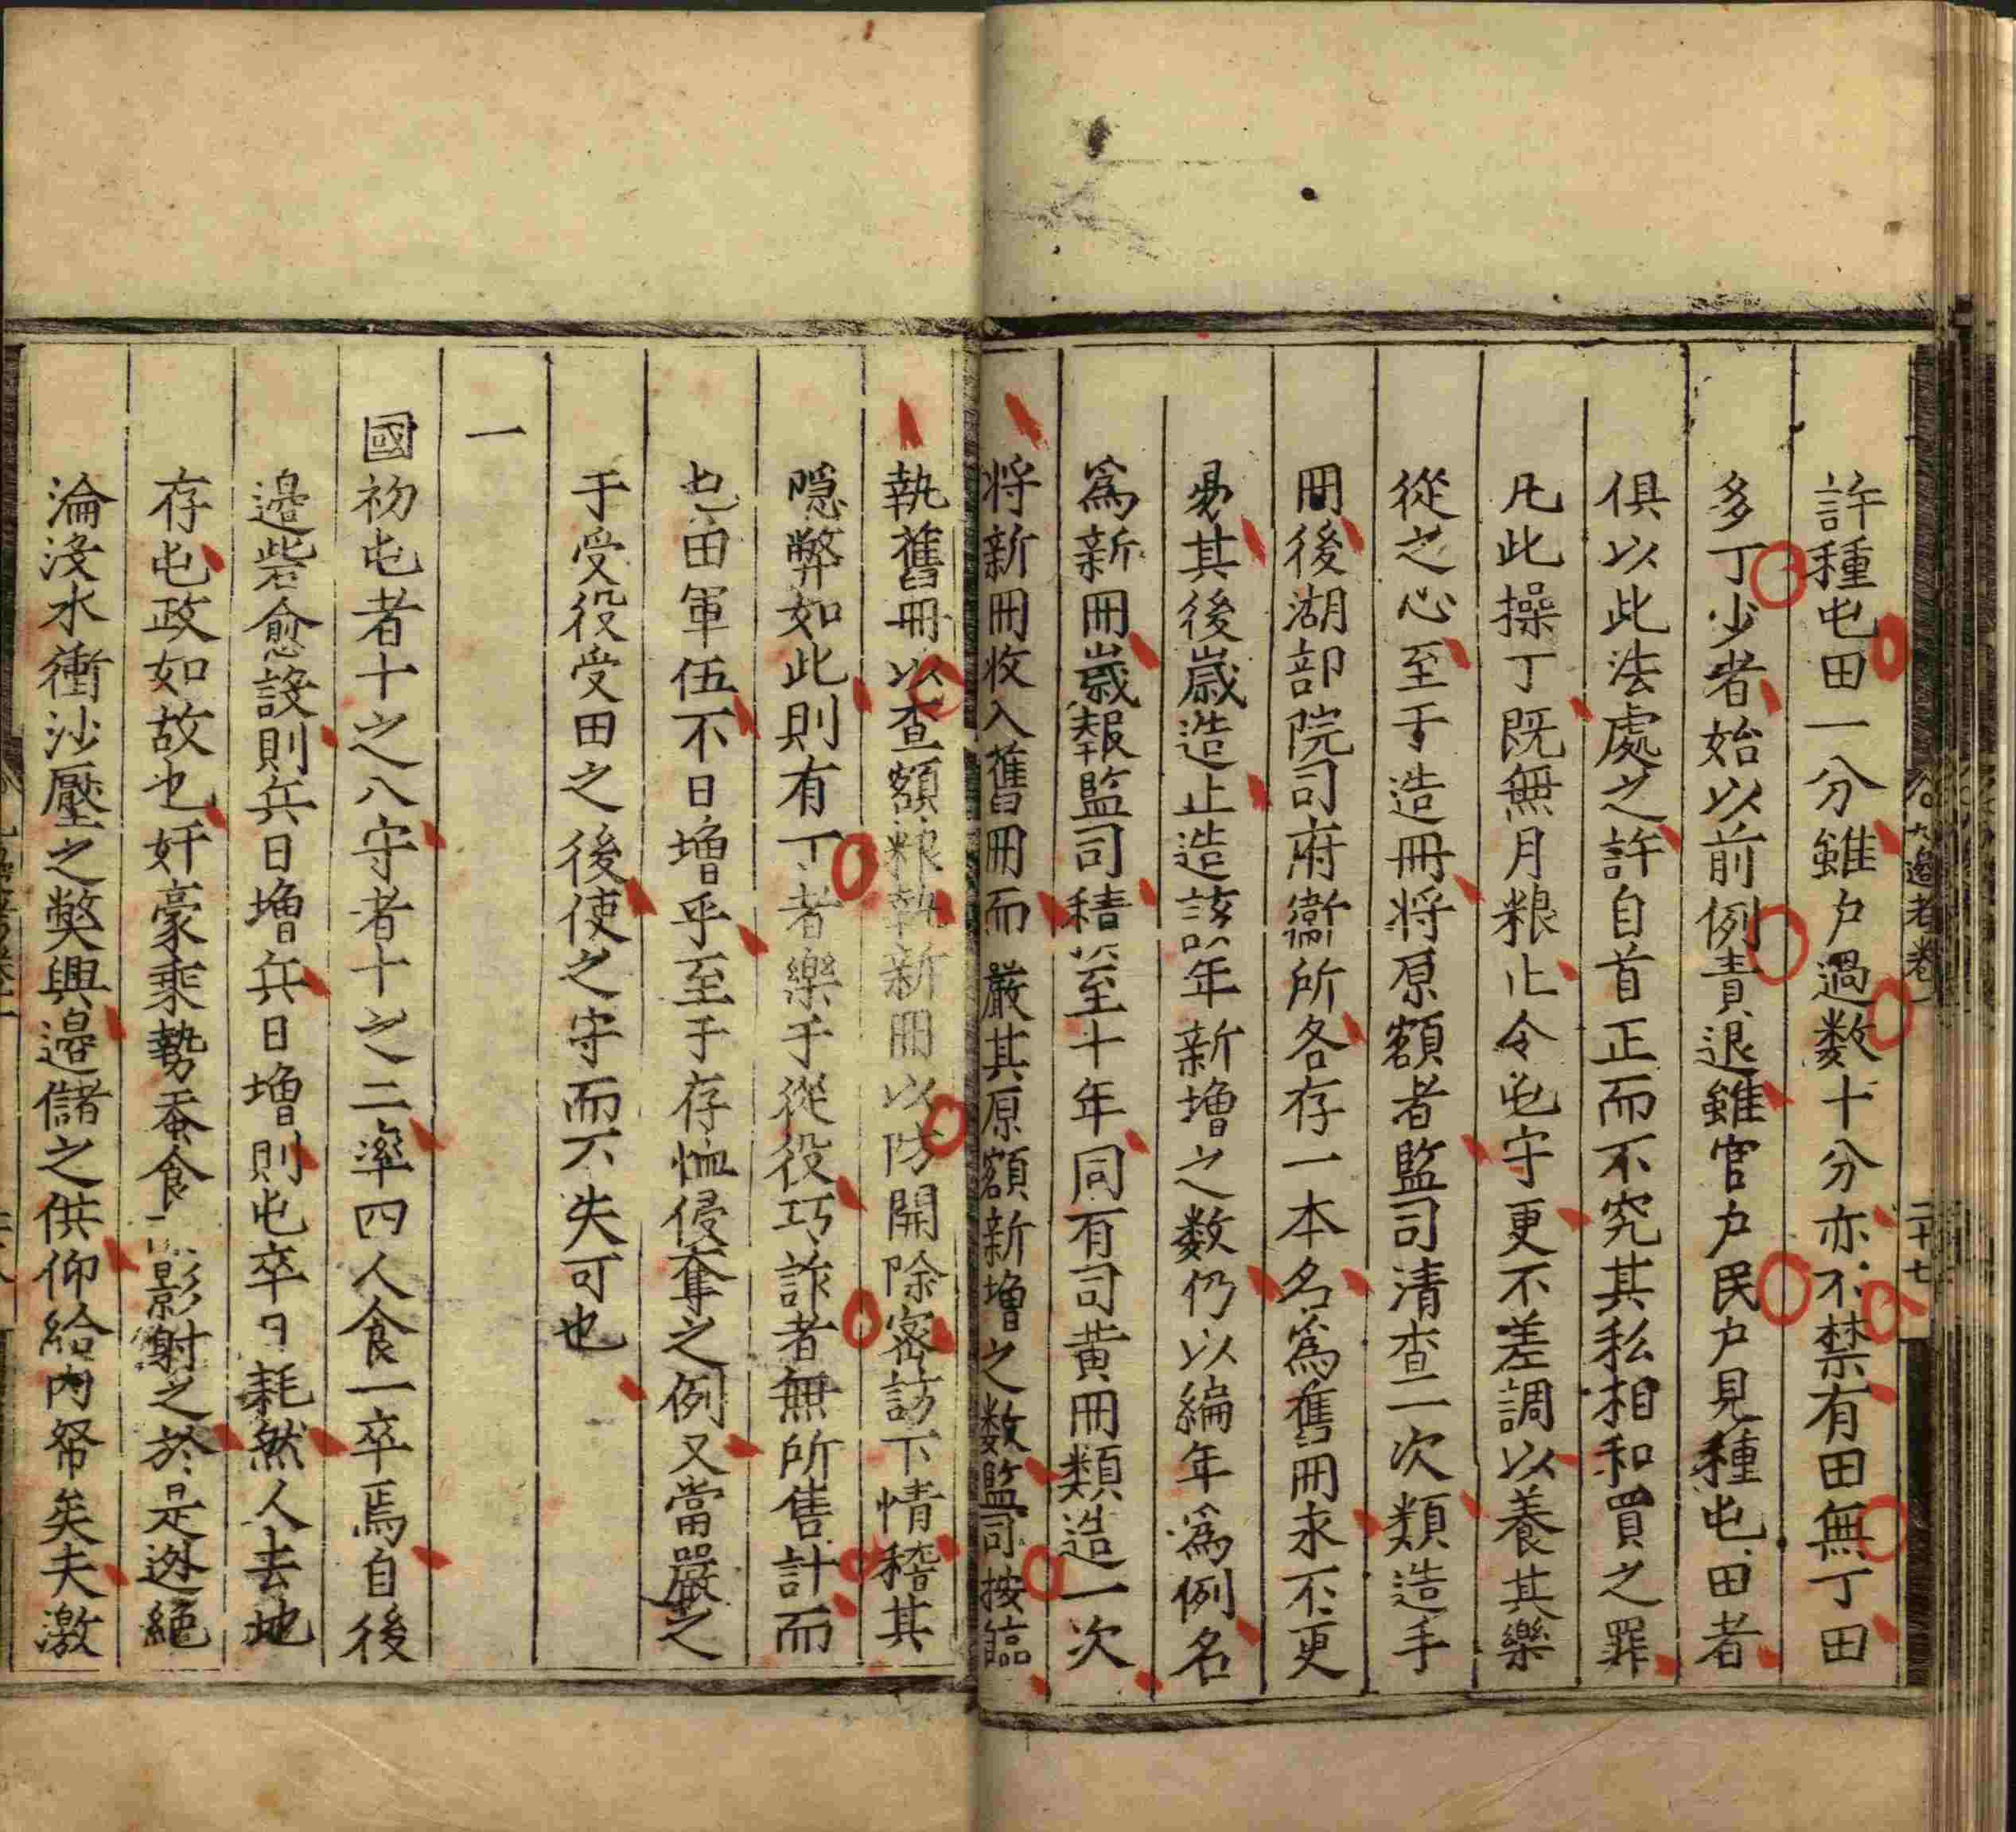 許種屯田一分雖户過数十分亦不禁有田無丁田
多丁少者始以前例責退雖官户民户見種屯田者
俱以此法處之許自首正而不究其私相和買之罪
凡此操丁既無月粮止令屯守更不差調以養其樂
從之心至于造冊将原額者監司清查一次類造手
冊後湖部院司府衞所各存一本名爲舊冊永不更
易其後嵗造止造該年新增之数仍以編年爲例名
爲新冊嵗報監司積至十年同有司黄冊類造一次
将新冊收入舊冊而嚴其原額新增之数監司按臨
執舊冊以查額粮執新冊以防開除密訪下情稽其
隠弊如此則有丁者樂于從役巧詐者無所售計而
屯田軍伍不日增乎至于存恤侵奪之例又當嚴之
于受役受田之後使之守而不失可也
一
國初屯者十之八守者十之二率四人食一卒焉自後
邉砦愈設則兵日增兵日增則屯卒日耗然人去地
存屯政如故也奸豪乘勢蚕食影射之於是迯絕
淪没水衝沙壓之獘興邉儲之供仰給内帑矣夫激
九邉考卷一
二十七